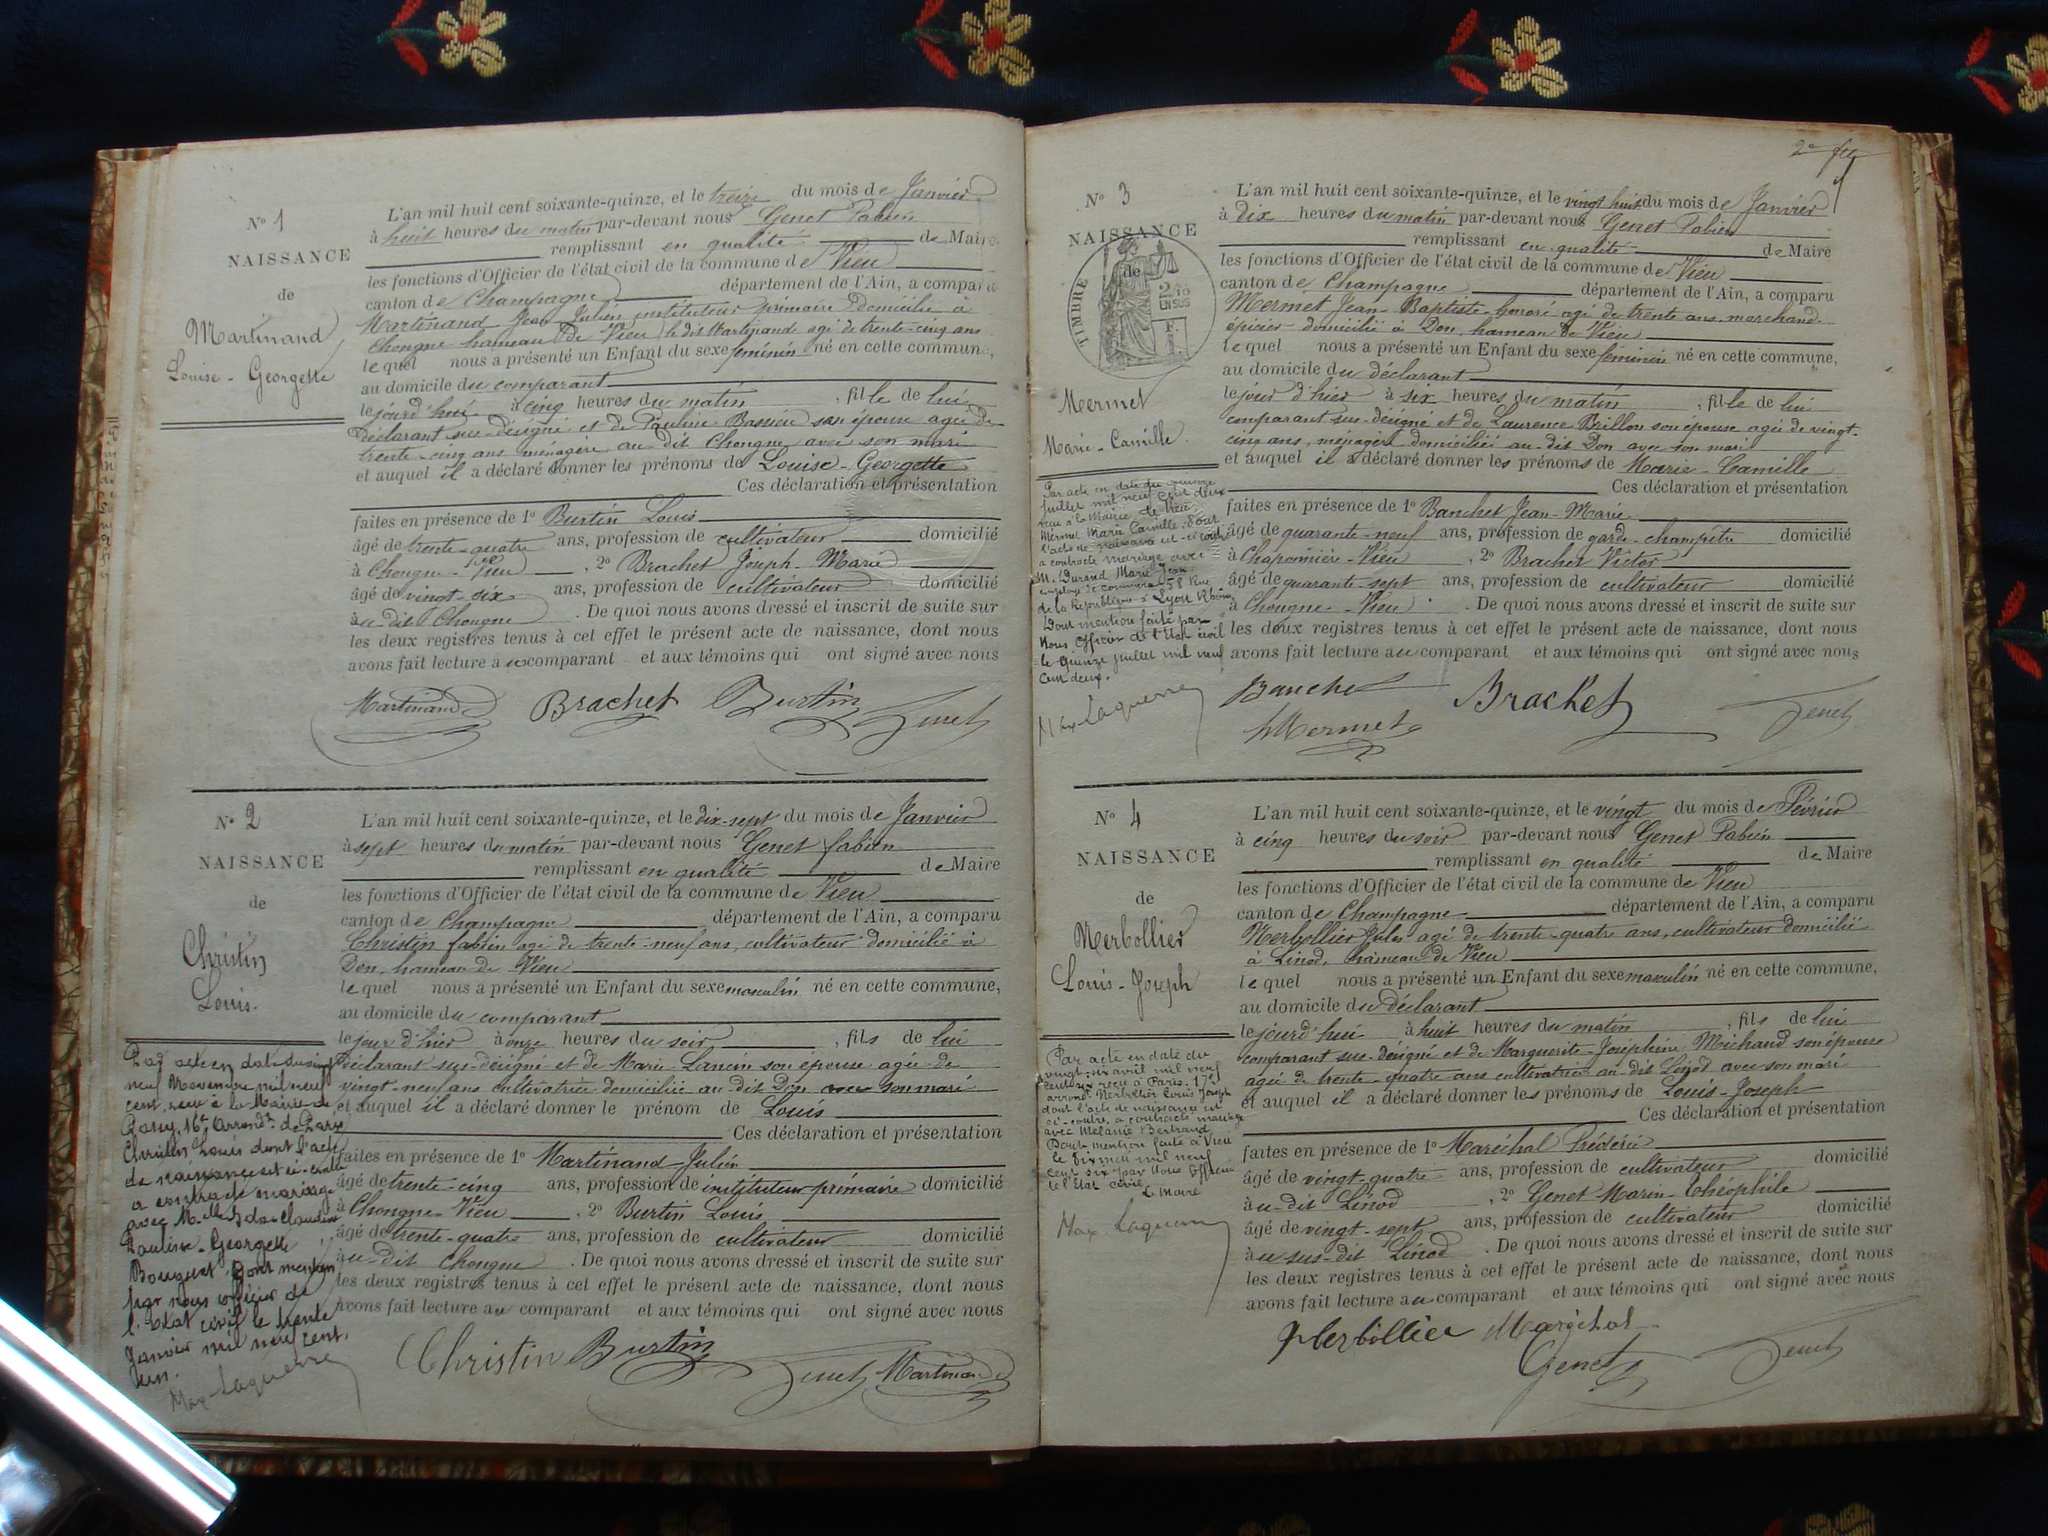 Nº 1
NAISSANCE
de
Martinand
Louise-Georgette
L'an mil huit cent soixante-quinze, et le treize du mois de Janvier
à huit heures du matin par-devant nous Genet Fabien
remplissant en qualité de Maire
les fonctions d'Officier de l'état civil de la commune de Vieu
canton de Champagne département de l'Ain, a comparu
Martinand Jean Julien instituteur primaire domicilié à
Chongne hameau de Vieu le dit Martinand agé de trente-cinq ans
lequel nous a présenté un Enfant du sexe féminin né en cette commune,
au domicile du comparant
le jourd'hui à cinq heures du matin, fille de lui
déclarant sus-désigné et de Pauline son épouse agée de
trente-cinq ans ménagère au dit Chongne avec son mari
et auquel il a déclaré donner les prénoms de Louise-Georgette
Ces déclaration et présentation
faites en présence de 1º Burtin Louis
âgé de trente-quatre ans, profession de cultivateur domicilié
à Chongne-Vieu, 2º Brachet Joseph-Marie
âgé de vingt-six ans, profession de cultivateur domicilié
au-dit Chongne. De quoi nous avons dressé et inscrit de suite sur
les deux registres tenus à cet effet le présent acte de naissance, dont nous
avons fait lecture au comparant et aux témoins qui ont signé avec nous
Martinand Brachet Burtin Genet
Nº 2
NAISSANCE
de
Christin
Louis.
Par acte en date du vingt
neuf Novembre mil neuf
cent, reçu à la Mairie de
16e Arrondt. de Paris
Christin Louis dont l'acte
de naissance est ci-contre
a contracté mariage
avec Claudine
Pauline-Georgette
Bouquet. Dont mention
par nous officier de
l'Etat civil le trente
Janvier mil neuf cent
un.
Max Laguerre
L'an mil huit cent soixante-quinze, et le dix-sept du mois de Janvier
à sept heures du matin par-devant nous Genet fabien
remplissant en qualité de Maire
les fonctions d'Officier de l'état civil de la commune de Vieu
canton de Champagne département de l'Ain, a comparu
Christin fabien agé de trente-neuf ans, cultivateur domicilié à
Don, hameau de Vieu
lequel nous a présenté un Enfant du sexe masculin né en cette commune,
au domicile du comparant
le jour d'hier à onze heures du soir, fils de lui
déclarant sus-désigné et de Marie Lancin son épouse agée de
vingt-neuf ans cultivatrice domiciliée au dit Don avec son mari
et auquel il a déclaré donner le prénom de Louis
Ces déclaration et présentation
faites en présence de 1º Martinand-Julien
âgé de trente-cinq ans, profession de instituteur primaire domicilié
à Chongne-Vieu, 2º Burtin Louis
âgé de trente-quatre ans, profession de cultivateur domicilié
au-dit Chongne. De quoi nous avons dressé et inscrit de suite sur
les deux registres tenus à cet effet le présent acte de naissance, dont nous
avons fait lecture au comparant et aux témoins qui ont signé avec nous
Christin Burtin Genet Martinand
Nº 3
NAISSANCE
de
TIMBRE
EN SUS
Mermet
Marie-Camille.
Par acte en date du quinze
Juillet mil neuf cent deux
reçu à la Mairie de Vieu
Mermet Marie Camille dont
l'acte de naissance est ci-contre
a contracté mariage avec
M. Durand Marie Jean
employé de commerce 58 Rue
de la République à Lyon Rhône
Dont mention faite par
Nous Officier de l'Etat civil
le quinze juillet mil neuf
cent deux.
Max Laguerre
L'an mil huit cent soixante-quinze, et le vingt huit du mois de Janvier
à dix heures du matin par-devant nous Genet Fabien
remplissant en qualité de Maire
les fonctions d'Officier de l'état civil de la commune de Vieu
canton de Champagne département de l'Ain, a comparu
Mermet Jean-Baptiste honoré agé de trente ans marchand
épicier domicilié à Don, hameau de Vieu
lequel nous a présenté un Enfant du sexe féminin né en cette commune,
au domicile du déclarant
le jour d'hier à six heures du matin, fille de lui
comparant sus-désigné et de Laurence Brillon son épouse agée de vingt-
cinq ans, ménagère domiciliée au-dit Don avec son mari
et auquel il a déclaré donner les prénoms de Marie-Camille
Ces déclaration et présentation
faites en présence de 1º Banchet Jean-Marie
âgé de quarante-neuf ans, profession de garde-champêtre domicilié
à Chaponnière-Vieu, 2º Brachet Victor
âgé de quarante-sept ans, profession de cultivateur domicilié
à Chongne-Vieu. De quoi nous avons dressé et inscrit de suite sur
les deux registres tenus à cet effet le présent acte de naissance, dont nous
avons fait lecture au comparant et aux témoins qui ont signé avec nous
Banchet Brachet Genet
hMermet
Nº 4
NAISSANCE
de
Merbollier
Louis-Joseph
Par acte en date du
vingt-six avril mil neuf
cent six reçu à Paris. 17e
arront Merbollier Louis Joseph
dont l'acte de naissance est
ci-contre, a contracté mariage
avec Mélanie Bertrand
Dont mention faite à Vieu
le dix mai mil neuf
cent six par Nous Officier
de l'Etat civil
Le Maire
Max Laguerre
L'an mil huit cent soixante-quinze, et le vingt du mois de Février
à cinq heures du soir par-devant nous Genet Fabien
remplissant en qualité de Maire
les fonctions d'Officier de l'état civil de la commune de Vieu
canton de Champagne département de l'Ain, a comparu
Merbollier Jules agé de trente-quatre ans, cultivateur domicilié
à Linod, hameau de Vieu
lequel nous a présenté un Enfant du sexe masculin né en cette commune,
au domicile du déclarant
le jourd'hui à huit heures du matin, fils de lui
comparant sus-désigné et de Marguerite-Joséphine Michaud son épouse
agée de trente-quatre ans cultivatrice au dit Linod avec son mari
et auquel il a déclaré donner les prénoms de Louis-Joseph
Ces déclaration et présentation
faites en présence de 1º Maréchal Frédéric
âgé de vingt-quatre ans, profession de cultivateur domicilié
au-dit Linod, 2º Genet Marin-Théophile
âgé de vingt-sept ans, profession de cultivateur domicilié
au sus-dit Linod. De quoi nous avons dressé et inscrit de suite sur
les deux registres tenus à cet effet le présent acte de naissance, dont nous
avons fait lecture au comparant et aux témoins qui ont signé avec nous
Merbollier Maréchal
Genet Genet